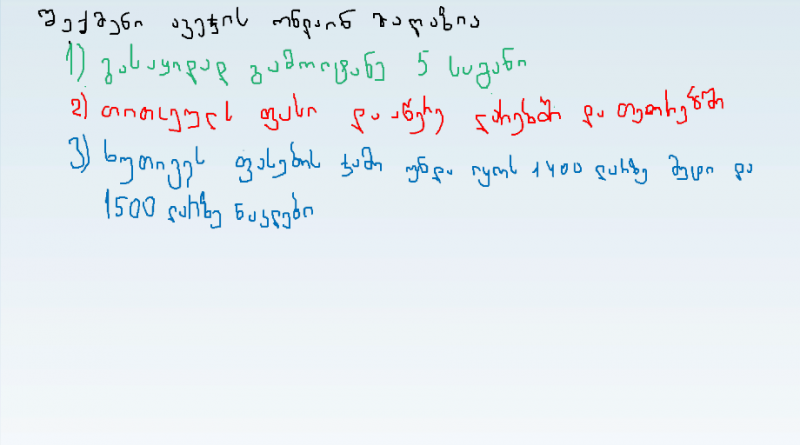 შექმენი ავეჯის ონლაინ მაღაზია
1) გასაყიდად გამოიტანე 5 საგანი
2) თითოეულს ფასი დააწერე ლარებში და თეთრებში
3) ხუთივეს ფასების ჯამი უნდა იყოს 1400 ლარზე მეტი და
1500 ლარზე ნაკლები